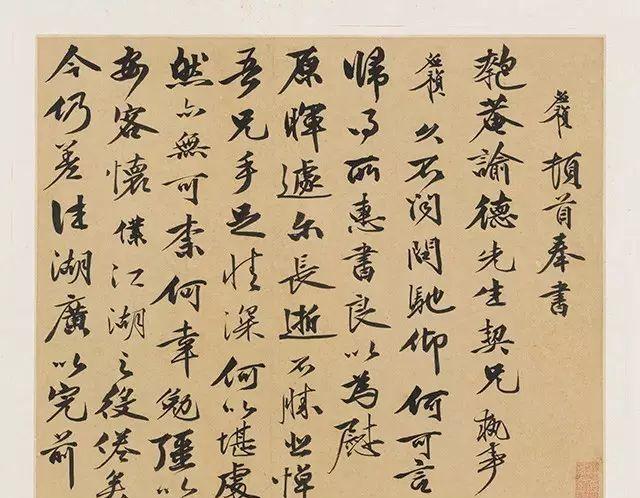 應禎頓首奉書
匏菴諭德先生契兄執事
應禎久不問聞馳仰何可言
歸得所惠書良以為慰
原暉遽尔長逝不勝悲悼
吾兄手足情深何以堪處
然亦無可柰何幸勉彊以
安客懷僕江湖之役倦矣
今仍差往湖廣以完前